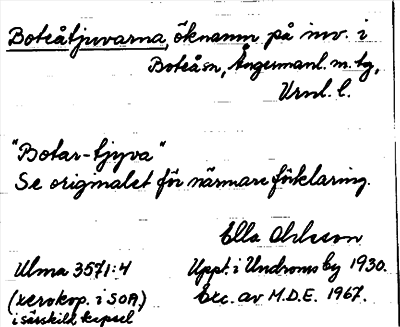 Boteåtjuvarna, öknamn på inv. i
Boteå sn, Ångermanl. m. tg,
Vrnl. l.
"Botar-tjyva"
Se originalet för närmare förklaring.
Ella Ohlsson
Ulma 3571:4
Uppt. i Undroms by 1930.
(xerokop. i SOA)
Exc. av M.D.E. 1967.
i särskild kapsel